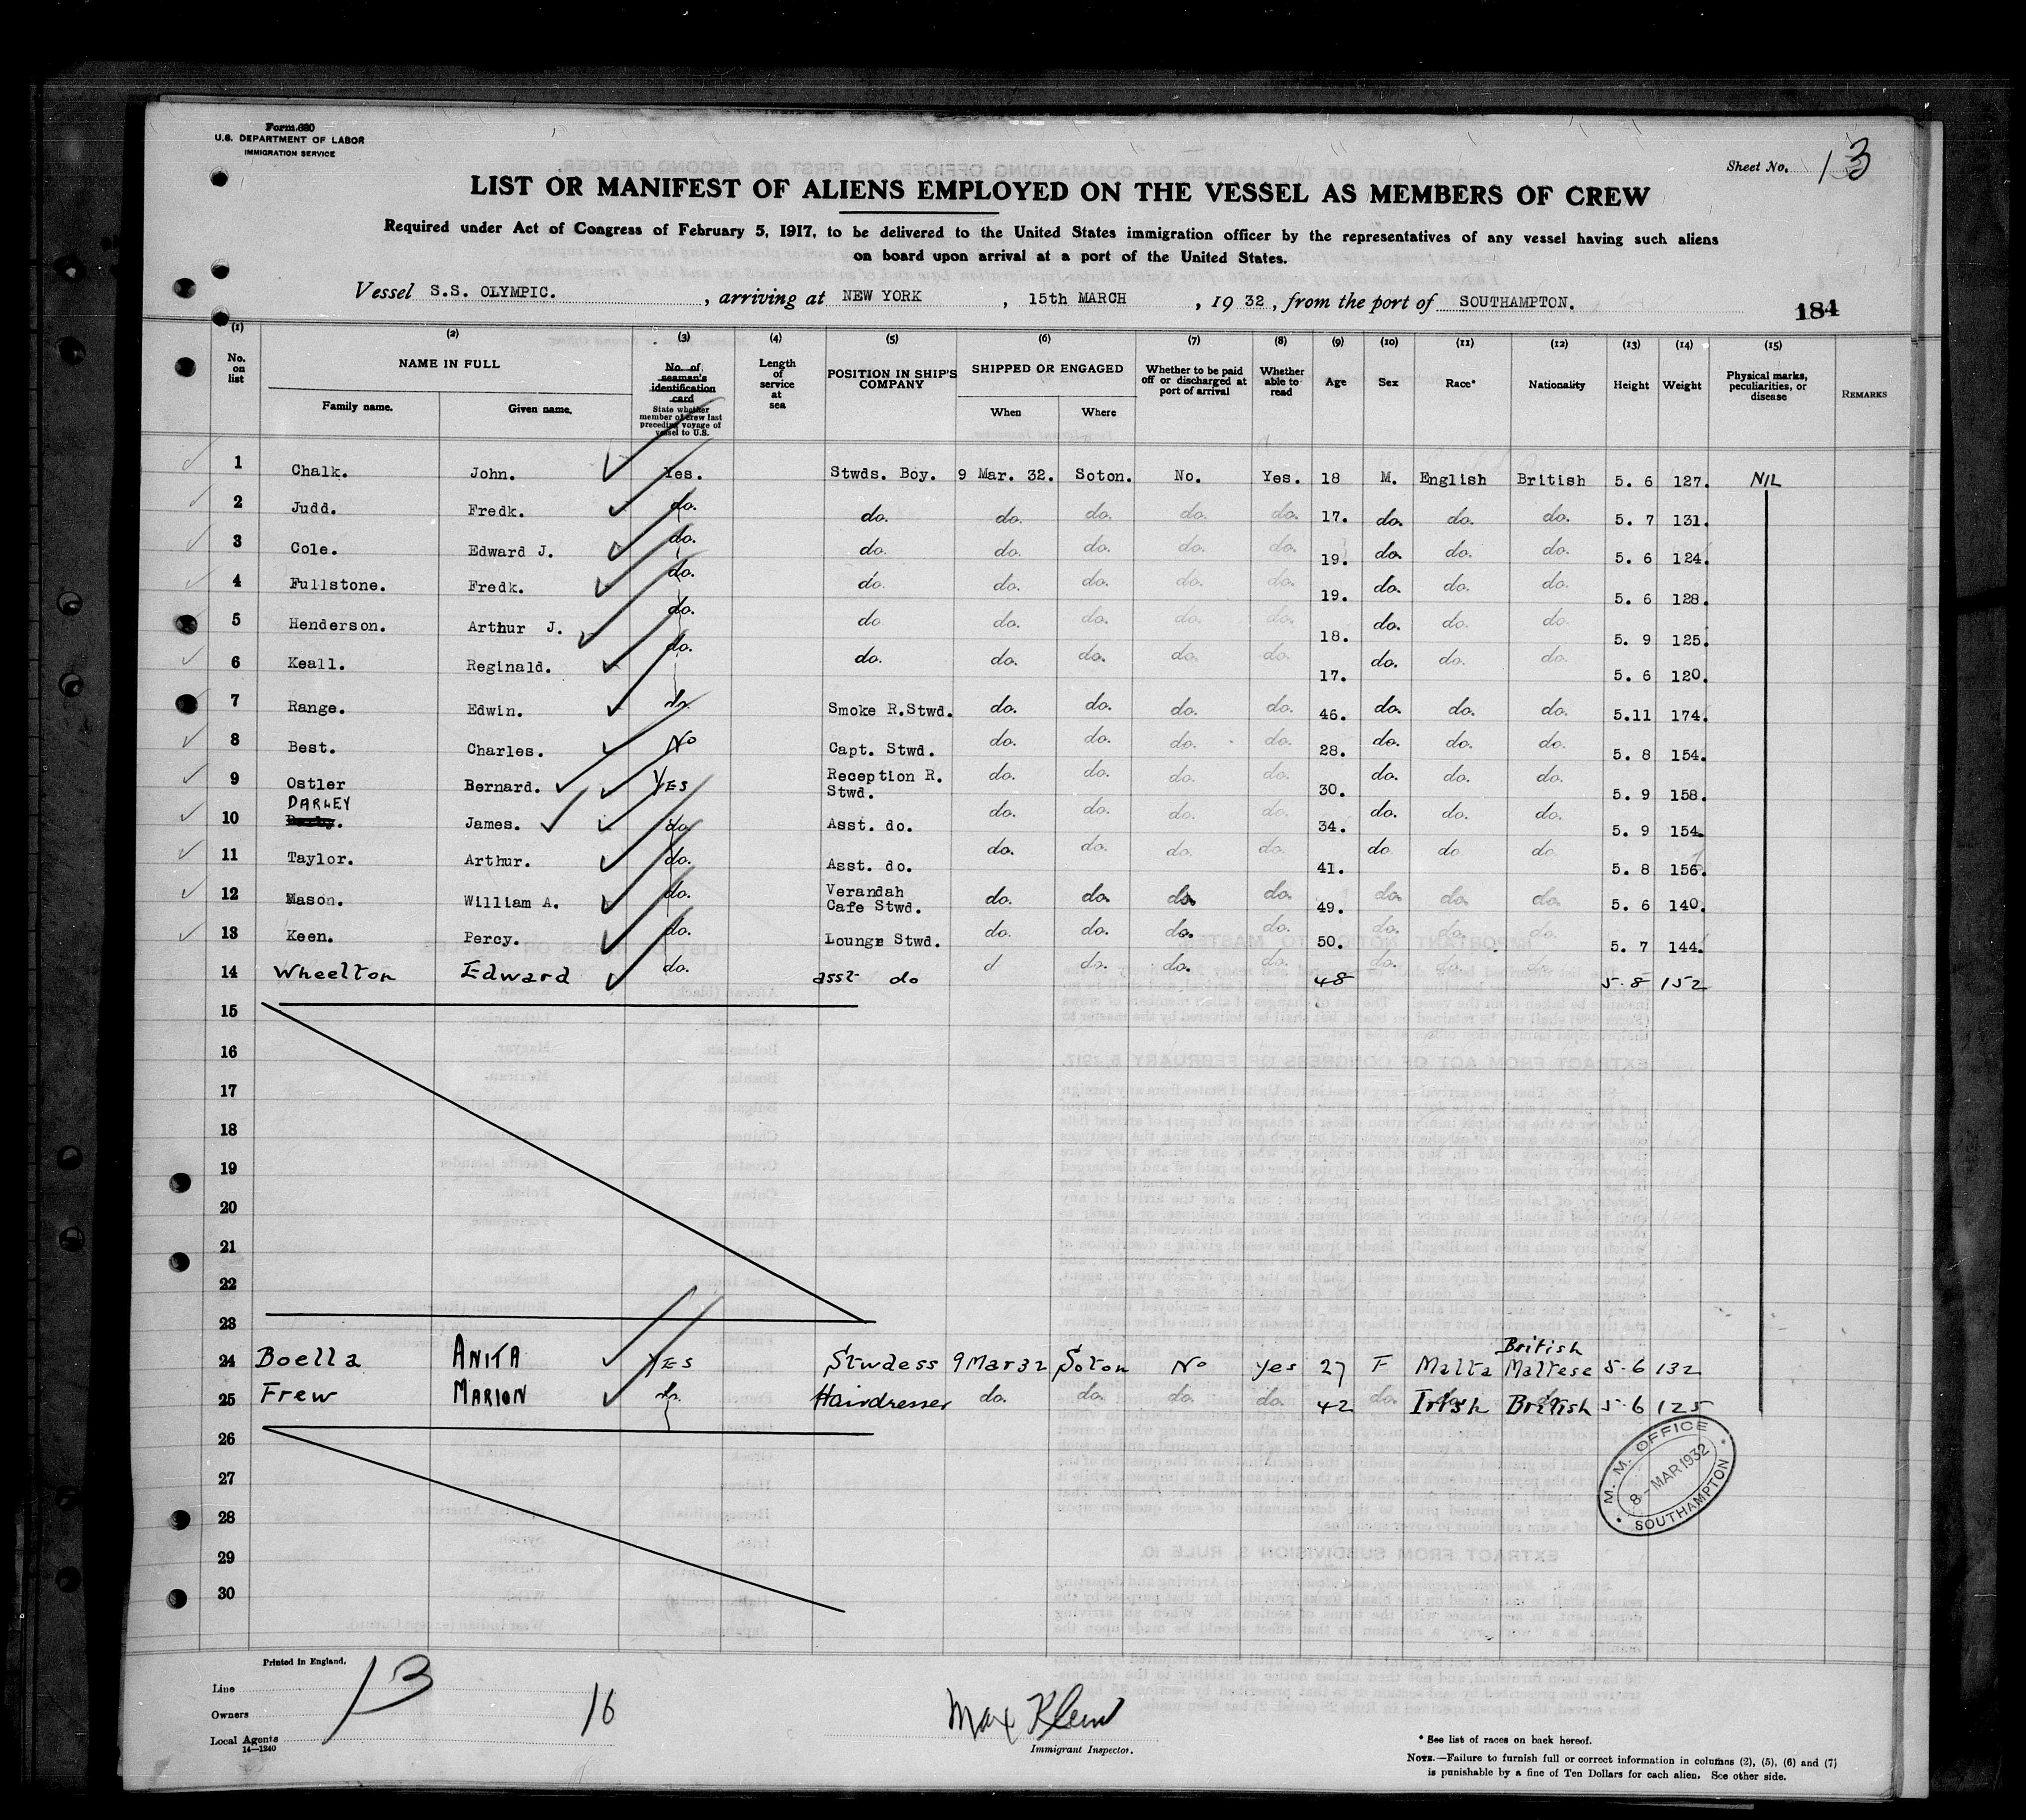 Form 680
U.S. DEPARTMENT OF LABOR
IMMIGRATION SERVICE
Sheet No. 13
LIST OR MANIFEST OF ALIENS EMPLOYED ON THE VESSEL AS MEMBERS OF CREW
Required under Act of Congress of February 5, 1917, to be delivered to the United States immigration officer by the representatives of any vessel having such aliens
on board upon arrival at a port of the United States.
Vessel S.S. OLYMPIC. , arriving at NEW YORK , 15th MARCH , 19 32 , from the port of SOUTHAMPTON.
184
(1) (2) (3) (4) (5) (6) (7) (8) (9) (10) (11) (12) (13) (14) (15)
No. on list NAME IN FULL Family name. Given name. No. of seaman's identification card State whether member of crew last preceding voyage of vessel to U.S. Length of service at sea POSITION IN SHIP'S COMPANY SHIPPED OR ENGAGED When Where Whether to be paid off or discharged at port of arrival Whether able to read Age Sex Race* Nationality Height Weight Physical marks, peculiarities, or disease REMARKS
1 Chalk. John. Yes. Stwds. Boy. 9 Mar. 32. Soton. No. Yes. 18 M. English British 5. 6 127. NIL
2 Judd. Fredk. do. do. do. do. do. do. 17. do. do. do. 5. 7 131.
3 Cole. Edward J. do. do. do. do. do. do. 19. do. do. do. 5. 6 124.
4 Fullstone. Fredk. do. do. do. do. do. do. 19. do. do. do. 5. 6 128.
5 Henderson. Arthur J. do. do do. do. do. do. 18. do. do. do 5. 9 125.
6 Keall. Reginald. do. do. do. do. do. do. 17. do. do. do. 5. 6 120.
7 Range. Edwin. do. Smoke R.Stwd. do. do. do. do. 46. do. do. do. 5.11 174.
8 Best. Charles. No Capt. Stwd. do. do. do. do. 28. do. do. do. 5. 8 154.
9 Ostler Bernard. YES Reception R. Stwd. do. do. do. do. 30. do. do. do. 5. 9 158.
DARLEY
10 James. do. Asst. do. do. do. do. do. 34. do. do. do. 5. 9 154.
11 Taylor. Arthur. do. Asst. do. do. do. do. do. 41. do do do 5. 8 156.
12 Mason. William A. do. Verandah Cafe Stwd. do. do. do. do. 49. do. do. do. 5. 6 140.
13 Keen. Percy. do. Lounge Stwd. do. do. do. do. 50. do. do. do. 5. 7 144.
14 Wheelton Edward do. asst do d do. do. do. 48 do. do. do. 5.8 152
15
16
17
18
19
20
21
22
23
British
24 Boella ANITA YES Stwdess 9 Mar 32 Soton No yes 27 F Malta Maltese 5.6 132
25 Frew MARION do. Hairdresser do. do. do. do. 42 do. Irish British 5.6 125
26
27
28
29
30
M. M. OFFICE
8 - MAR 1932
SOUTHAMPTON
Printed in England.
Line
Owners
Local Agents
14—1240
13
16
Max Klein
Immigrant Inspector.
* See list of races on back hereof.
NOTE.—Failure to furnish full or correct information in columns (2), (5), (6) and (7)
is punishable by a fine of Ten Dollars for each alien. See other side.